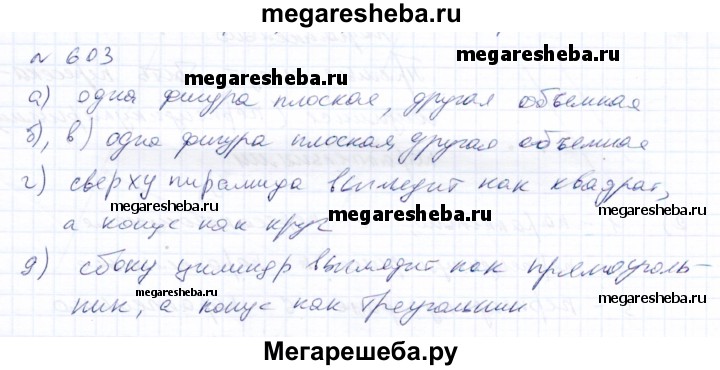 megaresheba.ru
N 603
megaresheba.ru megaresheba.ru
а) одна фигура плоская, другая объемная
б), в) одна фигура плоская, другая объемная
г) сверху пирамида выглядит как квадрат,
megaresheba.ru megaresheba.ru megaresheba.ru
а конус как круг
д) сбоку цилиндр выглядит как прямоуголь-
megaresheba.ru megaresheba.ru megaresheba.ru
ник, а конус как треугольник
Мегарешеба.ру